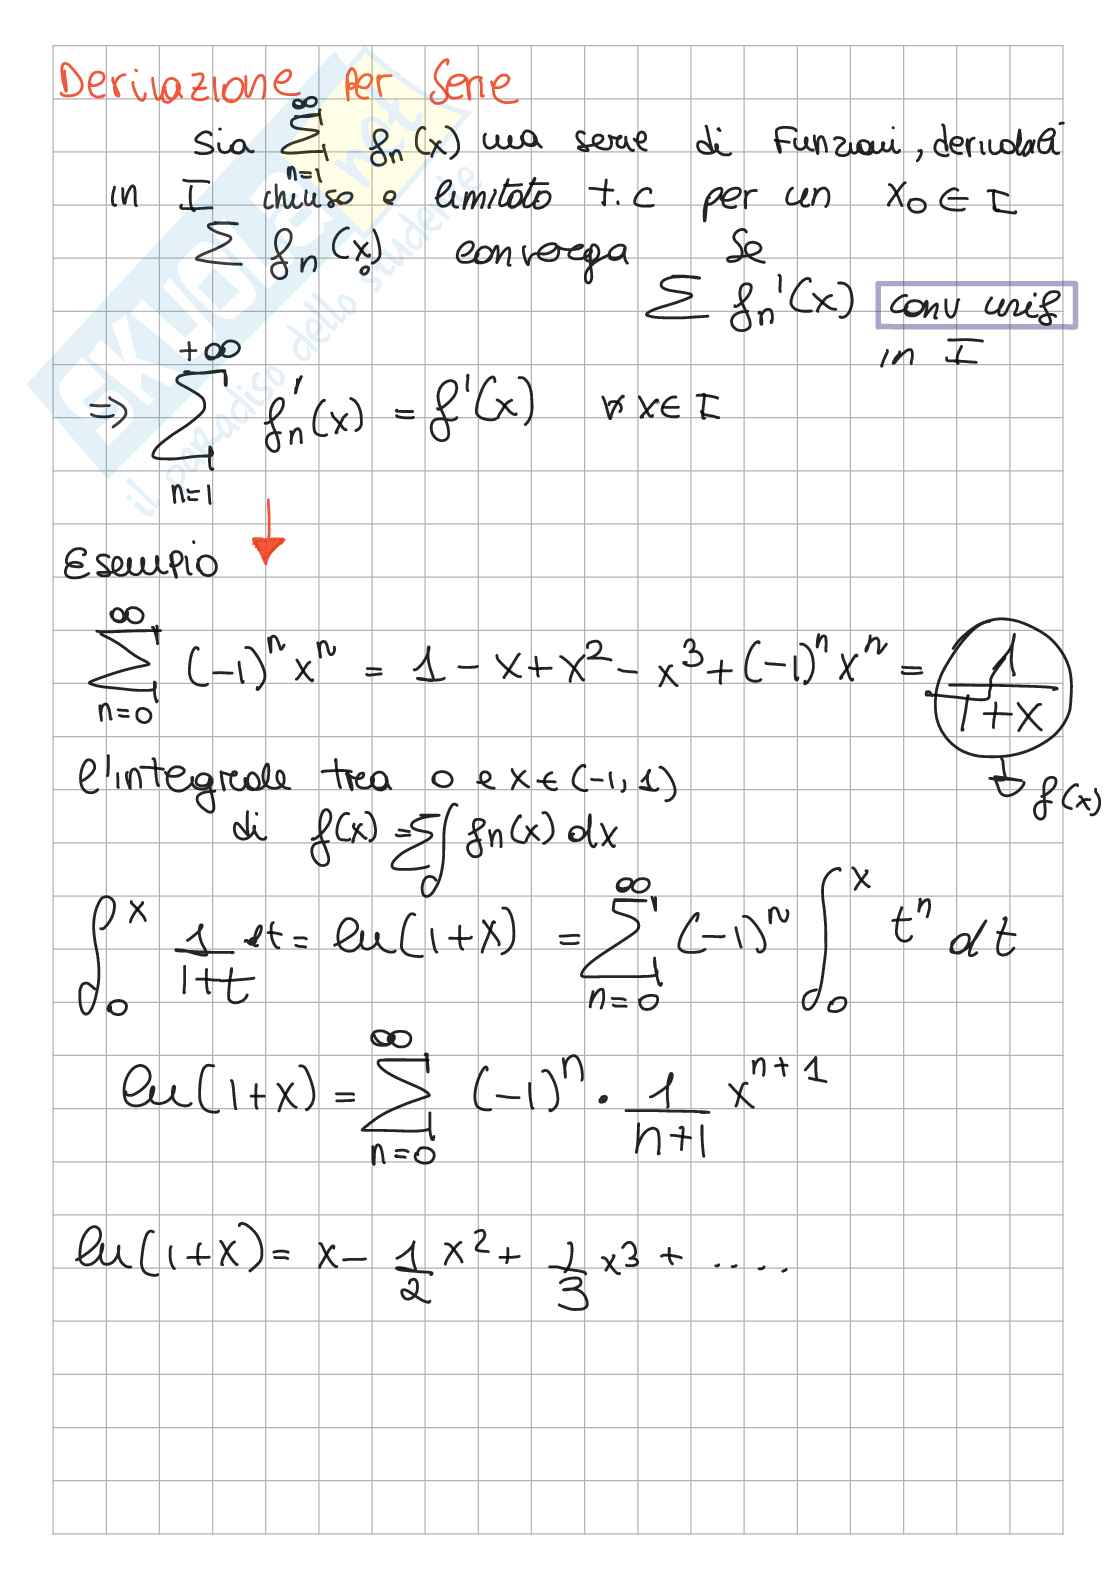 Derivazione per Serie
Sia $\sum_{n=1}^{\infty} f_n(x)$ una serie di Funzioni, derivabili
in I chiuso e limitato t.c per un $x_0 \in I$
$\sum f_n(x_0)$ converga Se
$\sum f_n'(x)$ conv unif
in I
$\Rightarrow \sum_{n=1}^{+\infty} f_n'(x) = f'(x) \quad \forall x \in I$
Esempio
$\sum_{n=0}^{\infty} (-1)^n x^n = 1 - x + x^2 - x^3 + (-1)^n x^n = \frac{1}{1+x}$
l'integrale tra 0 e $x \in (-1, 1)$
f(x)
di $f(x) = \sum \int f_n(x) dx$
$\int_0^x \frac{1}{1+t} dt = \ln(1+x) = \sum_{n=0}^{\infty} (-1)^n \int_0^x t^n dt$
$\ln(1+x) = \sum_{n=0}^{\infty} (-1)^n \cdot \frac{1}{n+1} x^{n+1}$
$\ln(1+x) = x - \frac{1}{2} x^2 + \frac{1}{3} x^3 + .....$
SKUOLA.net
il paradiso dello studente